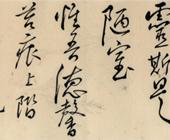 靈斯是
陋室
惟吾德馨
苔痕上階